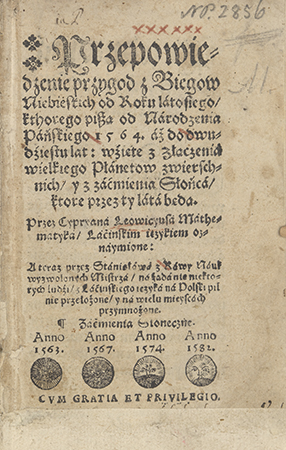 NP. 2856
Przepowie-
dzenie przygod z Biegow
Niebieskich od Roku latosiego/
kthorego pißą od Narodzenia
Páńskiego 1564. áż do dwu-
dziestu lat: wźięte z Złączenia
wielkiego Plánetow zwierzch-
nich/ y z záćmienia Słońcá/
ktore przez ty látá będą.
Przez Cypryaná Leowicyusá Mathe-
mátyká/ Láćinskim ięzykiem oz-
náymione:
A teraz przez Stánisłáwá z Ráwy Náuk
wyzwolonych Mistrzá/ ná żądánie niekto-
rych ludźi/ z Láćinskiego ięzyká ná Polski pil
nie przełożone/ y ná wielu mieyscách
przymnożone.
¶ Záćmienia Słoneczne.
Anno Anno Anno Anno
1563. 1567. 1574. 1582.
CVM GRATIA ET PRIVILEGIO.